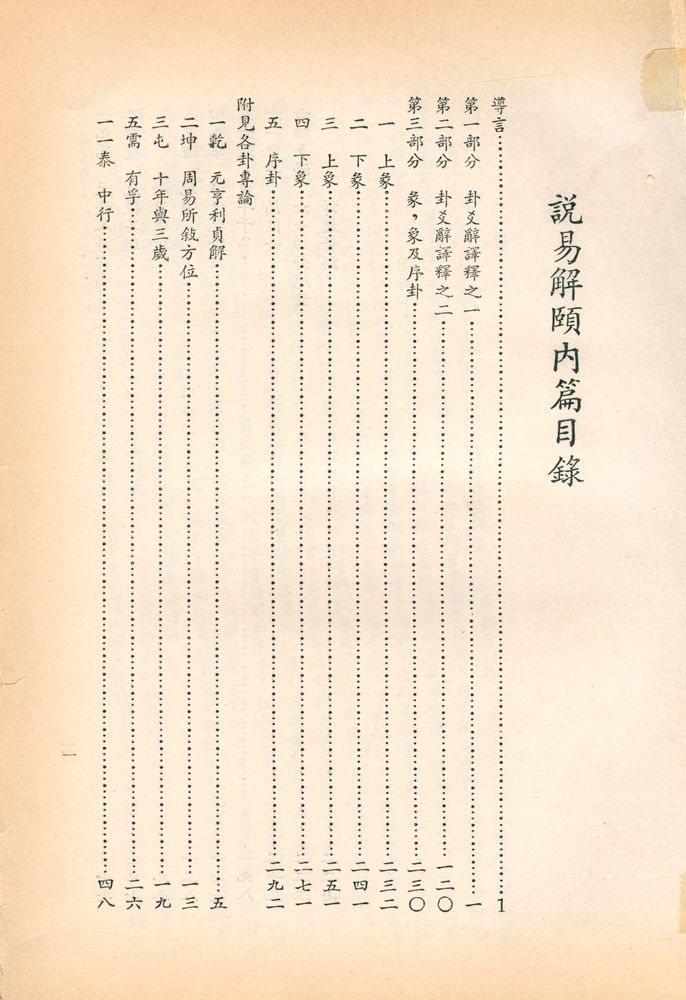 說易解頤內篇目錄
導言……1
第一部分 卦爻辭譯釋之一……一
第二部分 卦爻辭譯釋之二……一二〇
第三部分 彖,象及序卦……二三〇
一 上彖……二三二
二 下彖……二四一
三 上象……二五一
四 下象……二七一
五 序卦……二九二
附見各卦專論
一乾 元亨利貞解……五
二坤 周易所敍方位……一三
三屯 十年與三歲……一九
五需 有孚……二六
一一泰 中行……四八
一